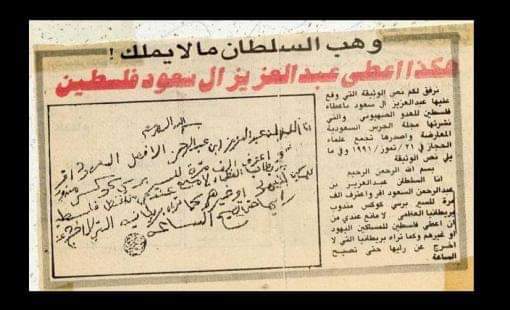 وهب السلطان ما لا يملك !
هكذا اعطى عبدالعزيز ال سعود فلسطين
نرفق لكم نص الوثيقة التي وقع
عليها عبدالعزيز ال سعود باعطاء
فلسطين للعدو الصهيوني والتي
نشرتها مجلة الحرس السعودية
المعارضة واصدرها تجمع علماء
الحجاز في ٢١/تموز/١٩٩١ وفي ما
يلي نص الوثيقة
بسم الله الرحمن الرحيم
انا السلطان عبدالعزيز بن
عبدالرحمن السعود اقر واعترف الف
مرة للسير برسي كوكس مندوب
بريطانيا العالمي لا مانع عندي من
ان اعطي فلسطين للمساكين اليهود
او غيرهم وكما تراه بريطانيا التي لا
اخرج عن رايها حتى تصبح
الساعة
بسم الله الرحمن الرحيم
انا السلطان عبدالعزيز ابن عبدالرحمن
السعود اقر
واعترف الف مرة للسير برسي كوكس مندوب
بريطانيا العظمى لا مانع عندي فلسطين